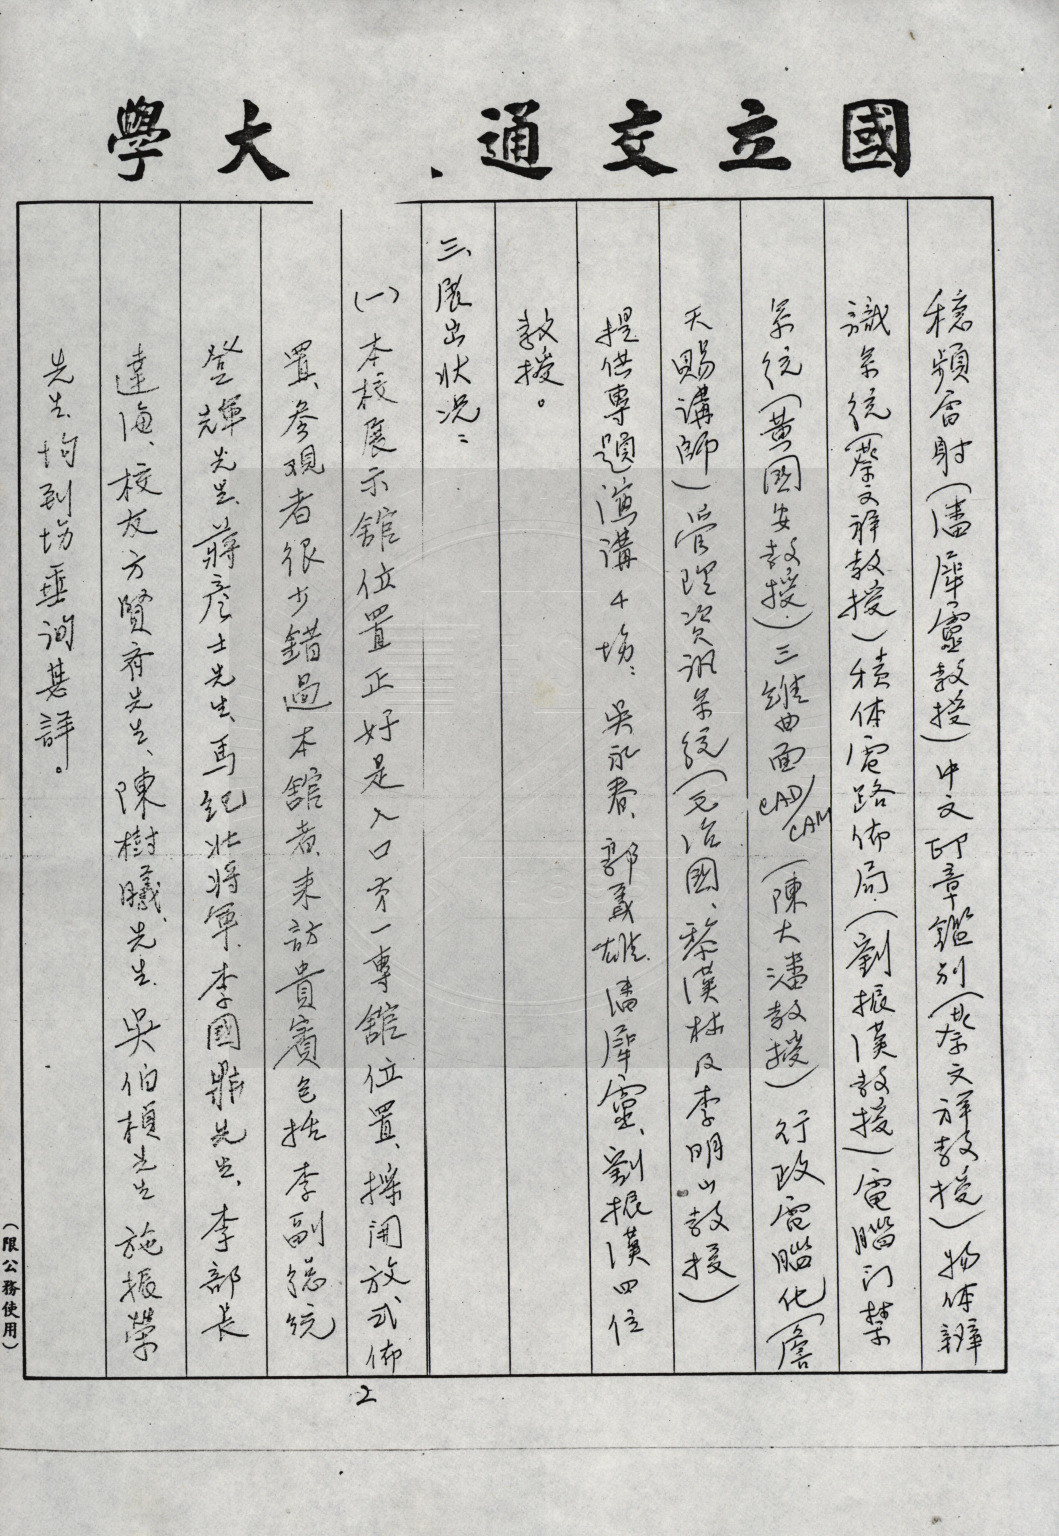 國立交通大學
穩頻雷射(潘犀靈教授)中文印章鑑別(蔡文祥教授)物体辨
識系統(蔡文祥教授)積体電路佈局(劉振漢教授)電腦門禁
系統(黃國安教授)三維曲面CAD/CAM(陳大潘教授)行政電腦化(詹
天賜講師)管理資訊系統(元治國、黎漢林及李明山教授)
提供專題演講4場:吳永春、郭義雄、潘犀靈、劉振漢四位
教授。
三、展出狀況:
(一)本校展示舘位置正好是入口第一專舘位置、採開放式佈
置、參观者很少錯過本舘者、来訪貴賓包括李副総統
登輝先生、蔣彥士先生、馬紀壯將軍、李國鼎先生、李部長
達海、校友方賢齊先生、陳樹曦先生、吳伯楨先生 施振榮
先生均到場垂詢甚詳。
2
(限公務使用)